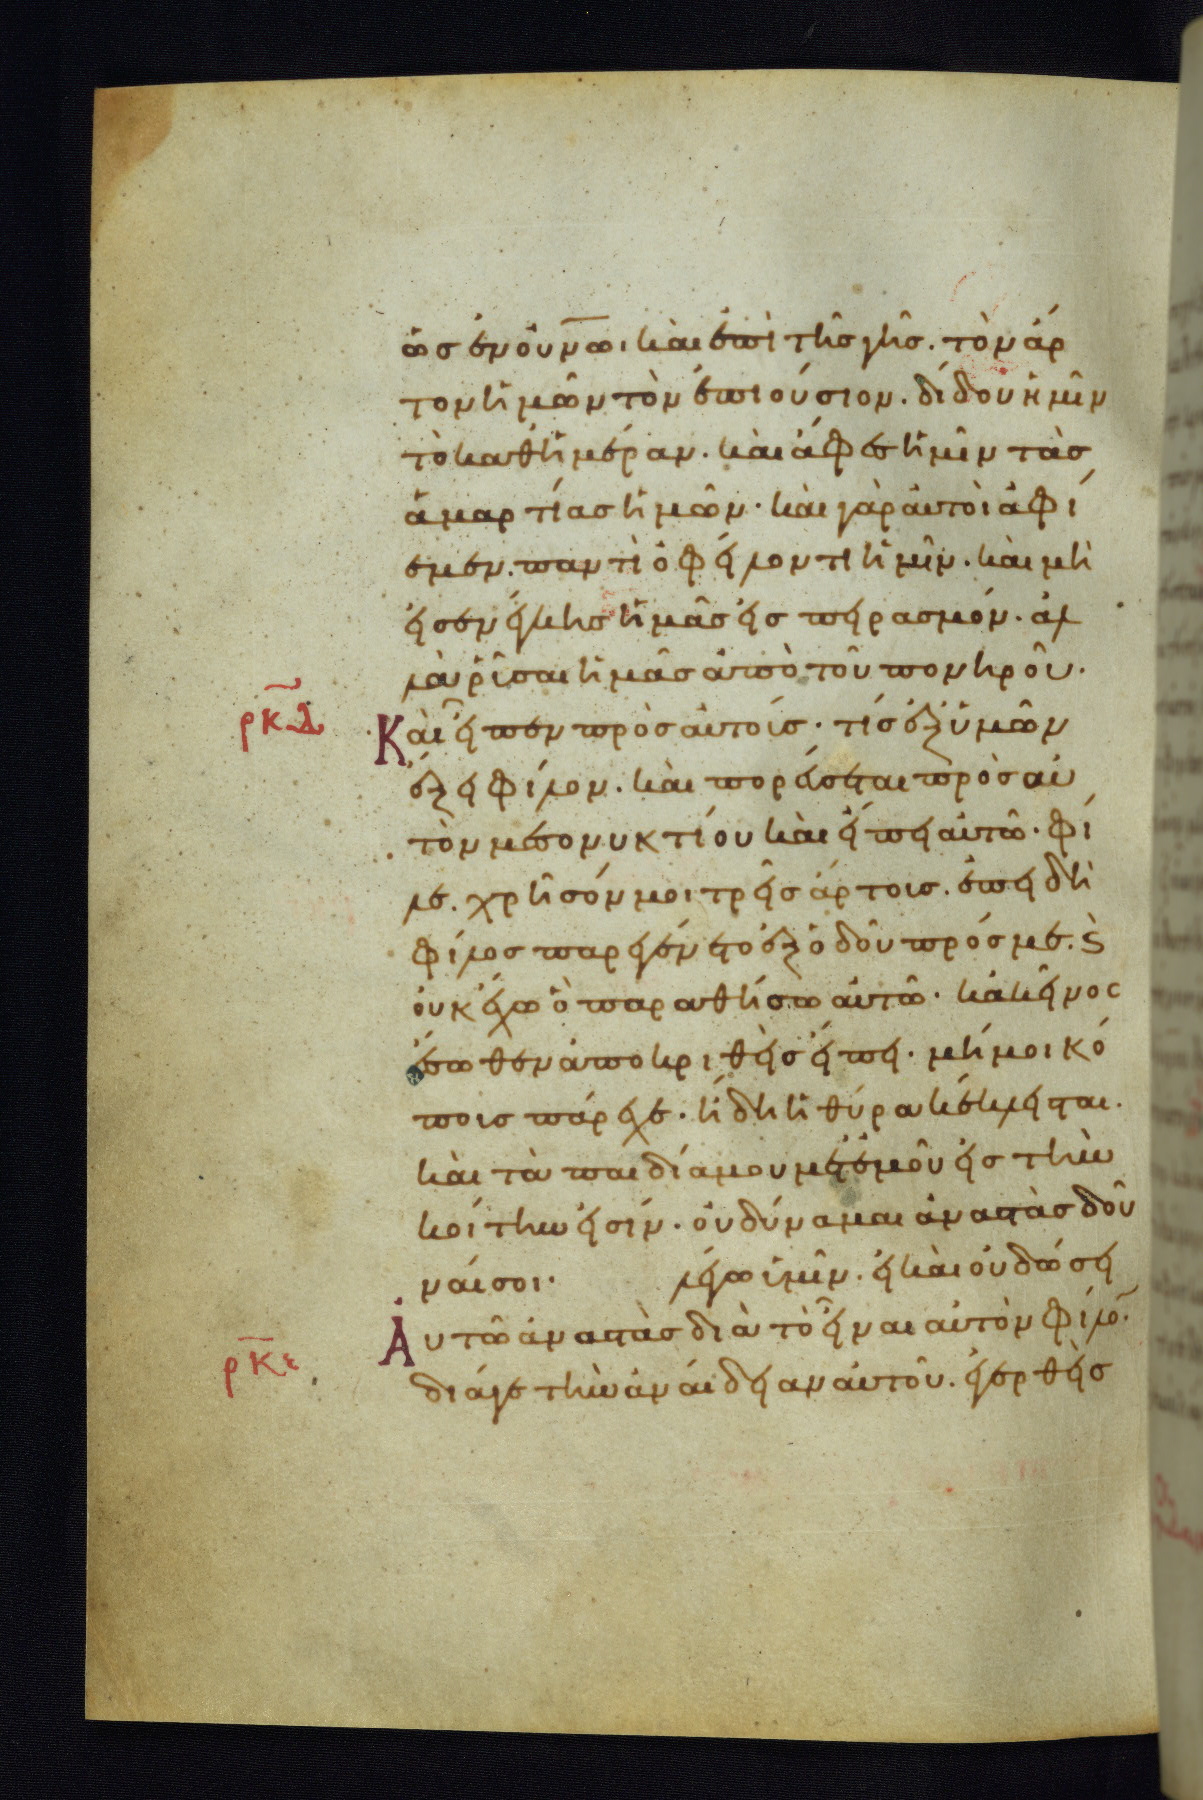 ὡς ἐν οὐνω. καὶ ἐπὶ τῆς γῆς. τὸν ἄρ
τον ἡμῶν τὸν ἐπιούσιον. δίδου ἡμῖν
τὸ καθἡμέραν. καὶ ἄφες ἡμῖν τὰς
ἁμαρτίας ἡμῶν. καὶ γὰρ αὐτοὶ ἀφί
εμεν. παντὶ ὀφείλοντι ἡμῖν. καὶ μὴ
εἰσενείκης ἡμᾶς εἰς πειρασμόν. ἀλ
λὰ ῥῦσαι ἡμᾶς ἀπὸ τοῦ πονηροῦ.
ρκδ Καὶ εἶπεν πρὸς αὐτούς. τίς ἐξ ὑμῶν
ἕξει φίλον. καὶ πορεύσεται πρὸς αὐ
τὸν μεσονυκτίου καὶ εἴπει αὐτῶ. φί
λε. χρῆσόν μοι τρεῖς ἄρτους. ἐπειδὴ
φίλος παρεγένετο ἐξ ὁδοῦ πρός με. ϗ
οὐκ ἔχω ὃ παραθήσω αὐτῶ. κακεῖνος
ἔσωθεν ἀποκριθεὶς εἴπει. μή μοι κό
πους πάρεχε. ἤδη ἡ θύρα κέκλεισται.
καὶ τὰ παιδία μου μετἐμοῦ εἰς τὴν
κοίτην εἰσίν. οὐ δύναμαι ἀναστὰς δοῦ
ναί σοι. λέγω ὑμῖν. εἰ καὶ οὐ δώσει
ρκε Αὐτῶ ἀναστὰς διὰ τὸ εἶναι αὐτὸν φίλο.
διάγε τὴν ἀναίδειαν αὐτοῦ. ἐγερθεὶς